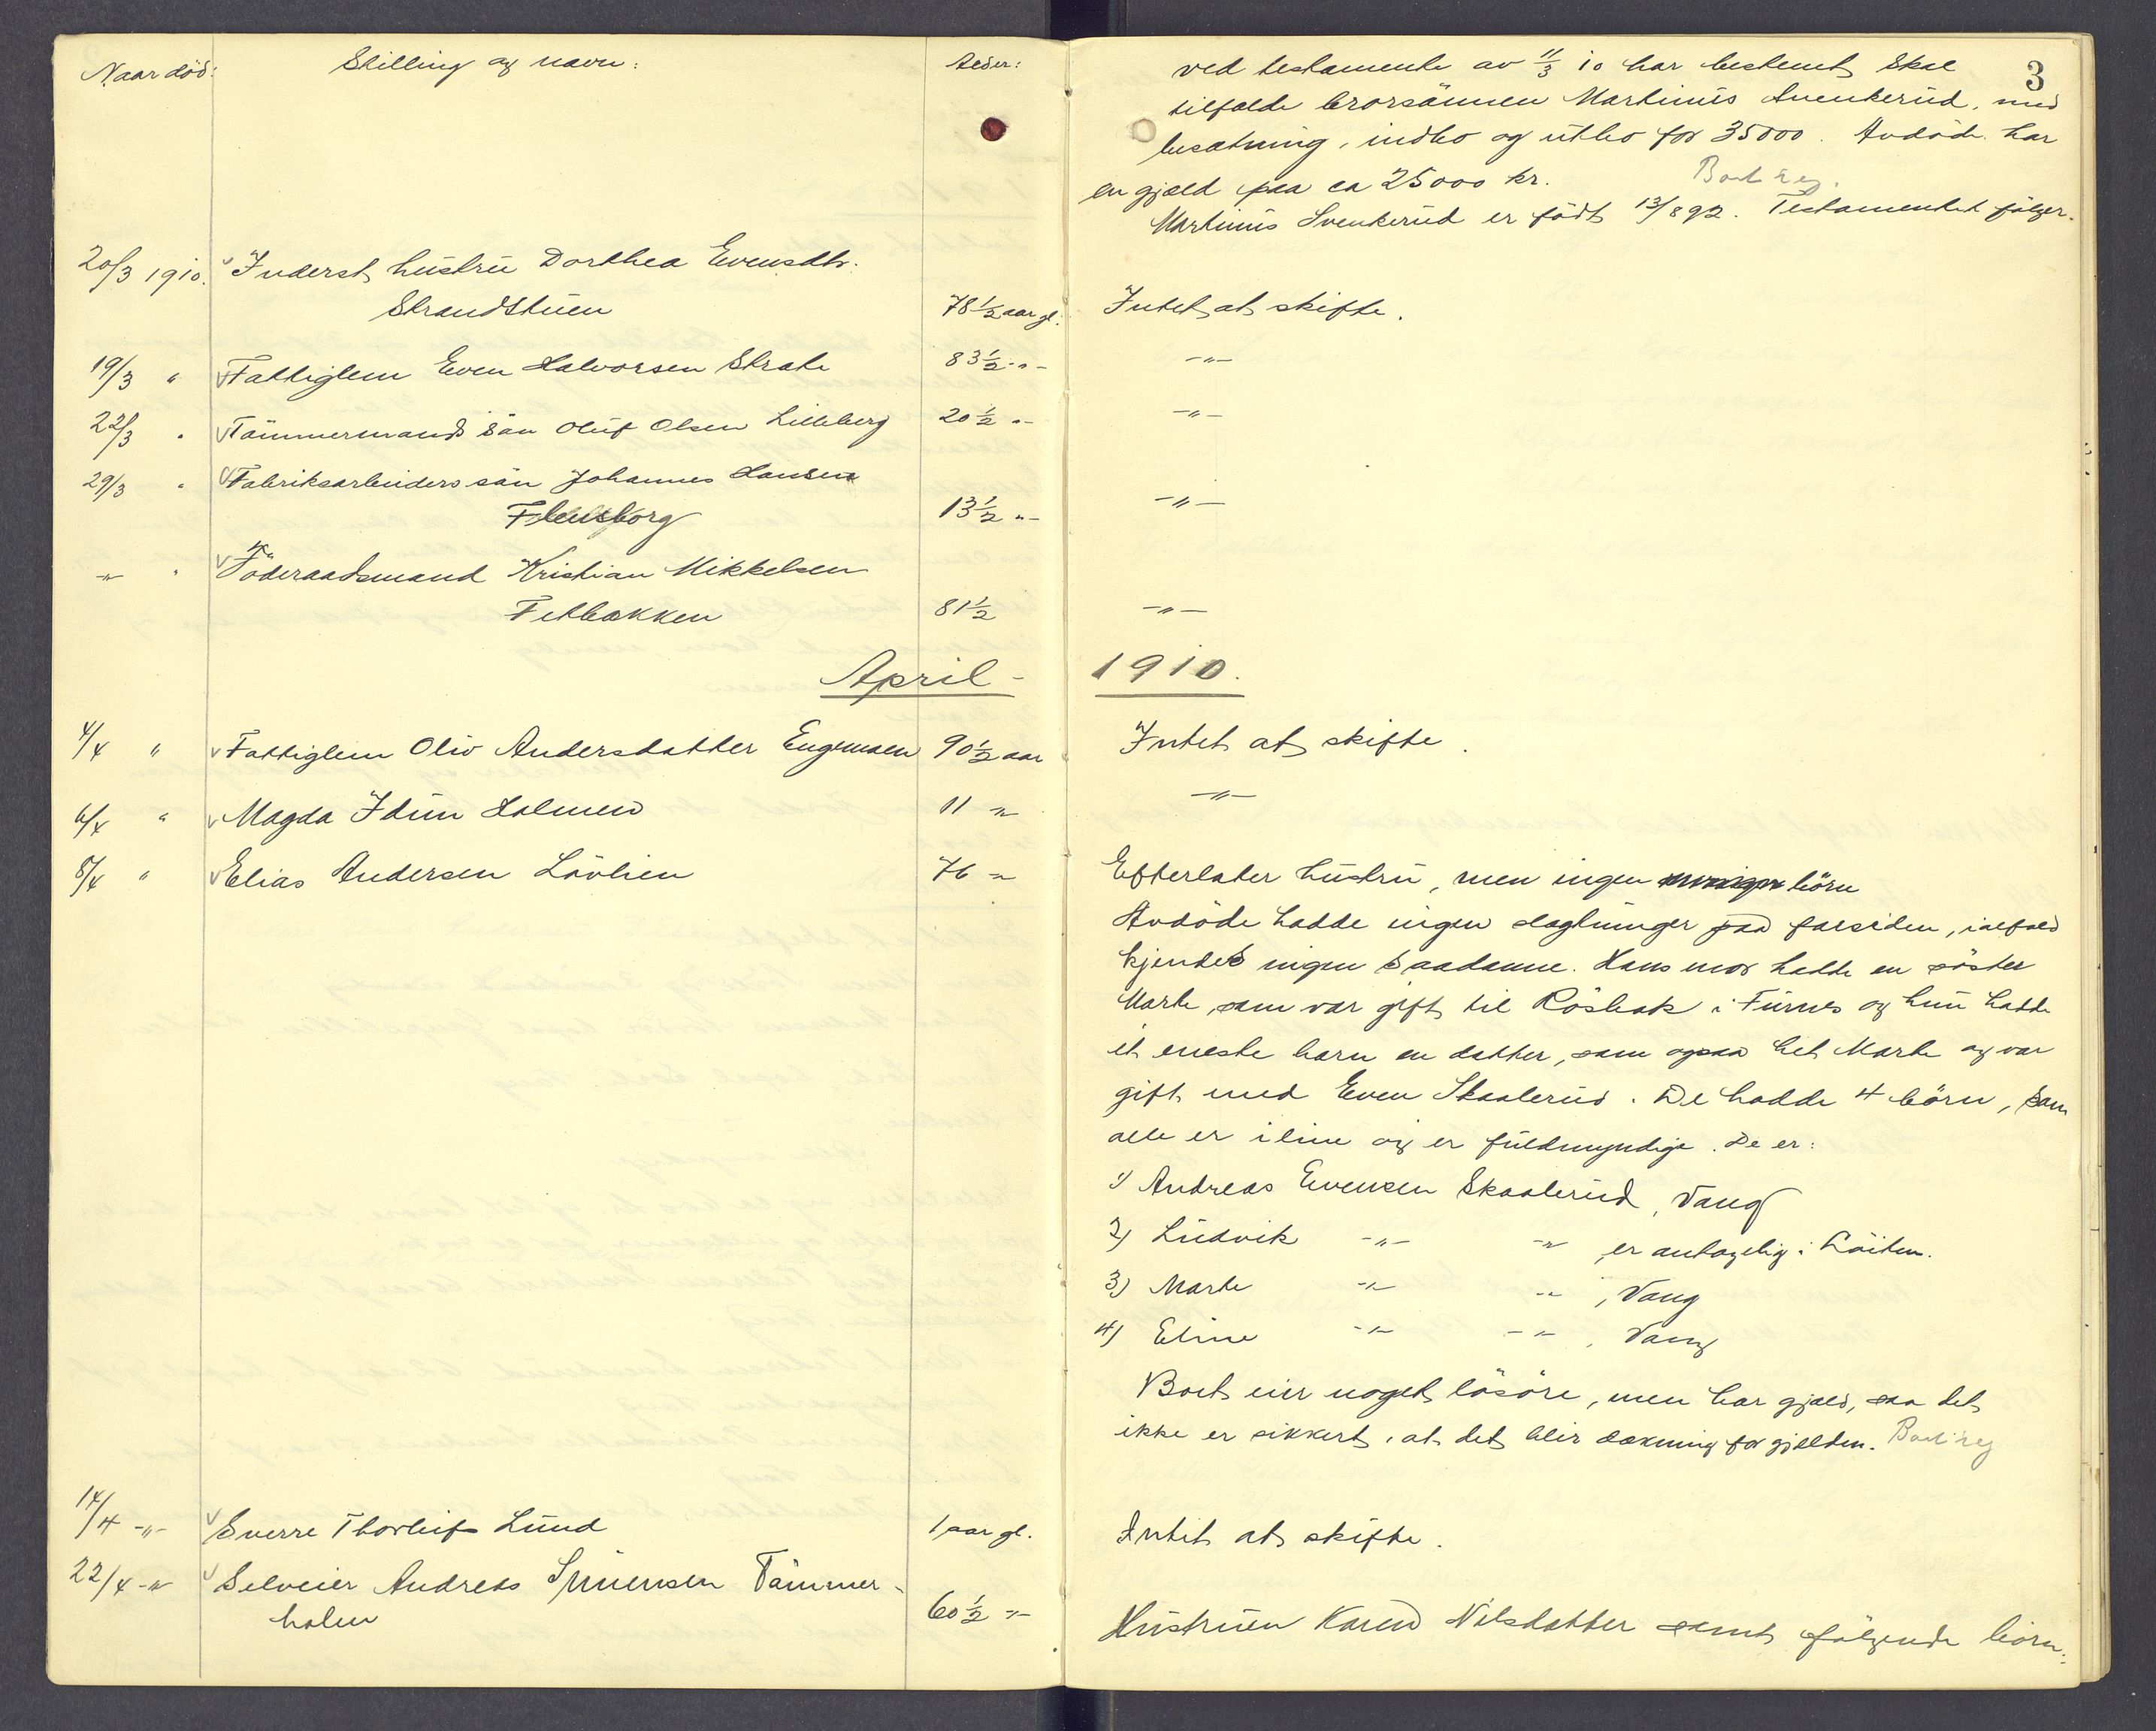 Naar död:
Stilling og navn:
Alder:
3
ved testamente av 11/3 10 har bestemt skal
tilfalde brorsønnen Martinus Svenkerud, med
besætning, indbo og utbo for 35000. Avdøde har
en gjæld paa ca 25000 kr.
Martinus Svenkerud er født 13/8 92. Testamentet følger.
20/3 1910. Inderst hustru Dorthea Evensdtr.
Strandstuen 78½ aar gl. Intet at skifte.
19/3 " Fattiglem Even Halvorsen Strate 83½ -"- -"-
22/3 " Tömmermands sön Oluf Olsen Lilleberg 20½ "- -"-
29/3 " Fabriksarbeiders sön Johannes Hansen
Flensborg 13½ "- -"-
-"- " Föderaadsmand Kristian Mikkelsen
Fetbakken 81½ -"-
April - 1910.
4/4 " Fattiglem Oliv Andersdatter Engemoen 90½ aar Intet at skifte.
6/4 " Magda Idun Holmen 11 -"- -"-
8/4 " Elias Andersen Lövlien 76 -"- Efterlater hustru, men ingen börn
Avdöde hadde ingen slagtninger paa farsiden, ialfald
kjendes ingen saadanne. Hans mor hadde en söster
Marte, som var gift til Rösbak i Furnes og hun hadde
et eneste barn en datter, som ogsaa het Marte og var
gift med Even Skaalerud. De hadde 4 börn, som
alle er ilive og er fuldmyndige. De er:
1) Andreas Evensen Skaalerud, Vang
2) Ludvik -"- -"- er antagelig i Löiten.
3) Marte -"- -"- , Vang
4) Eline -"- -"- , Vang
Boet eier noget lösöre, men har gjæld, saa det
ikke er sikkert, at det blir dækning for gjælden.
14/4 -"- Sverre Thorleif Lund 1 aar gl. Intet at skifte.
22/4 -"- Selveier Andreas Simensen Tömmer-
holen 60½ -"- Hustruen Karen Nilsdatter samt følgende börn: